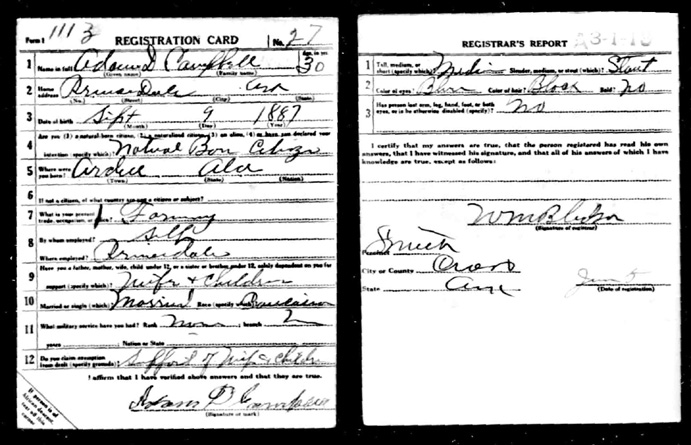 Form 1 1113 REGISTRATION CARD No. 27
1 Name in full Adam D Campbell Age, in yrs 30
(Given name) (Family name)
2 Home address Ark
(No.) (Street) (City) (State)
3 Date of birth Sept 9 1887
(Month) (Day) (Year)
4 Are you (1) a natural-born citizen, (2) a naturalized citizen, (3) an alien, (4) or have you declared your
intention (specify which)? Natural Born Citizen
5 Where were you born? Ardell Ala
(Town) (State) (Nation)
6 If not a citizen, of what country are you a citizen or subject?
7 What is your present trade, occupation, or office? Farming
8 By whom employed? Self
Where employed?
9 Have you a father, mother, wife, child under 12, or a sister or brother under 12, solely dependent on you for
support (specify which)? Wife & Children
10 Married or single (which)? Married Race (specify which)? Caucasian
11 What military service have you had? Rank None branch
years Nation or State
12 Do you claim exemption from draft (specify grounds)? Support of Wife & Children
I affirm that I have verified above answers and that they are true.
Adam D Campbell
(Signature or mark)
If person is of African descent, tear off this corner
REGISTRAR'S REPORT A3-1-19
1 Tall, medium, or short (specify which)? Medium Slender, medium, or stout (which)? Stout
2 Color of eyes? Blue Color of hair? Black Bald? No
3 Has person lost arm, leg, hand, foot, or both eyes, or is he otherwise disabled (specify)? No
I certify that my answers are true, that the person registered has read his own
answers, that I have witnessed his signature, and that all of his answers of which I have
knowledge are true, except as follows:
(Signature of registrar)
Precinct Smith
City or County
State Ark June 5
(Date of registration)